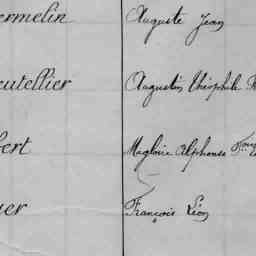 ermelin Auguste Jean
eutellier Augustin Théophile
bert Magloire Alphonse
er François Léon